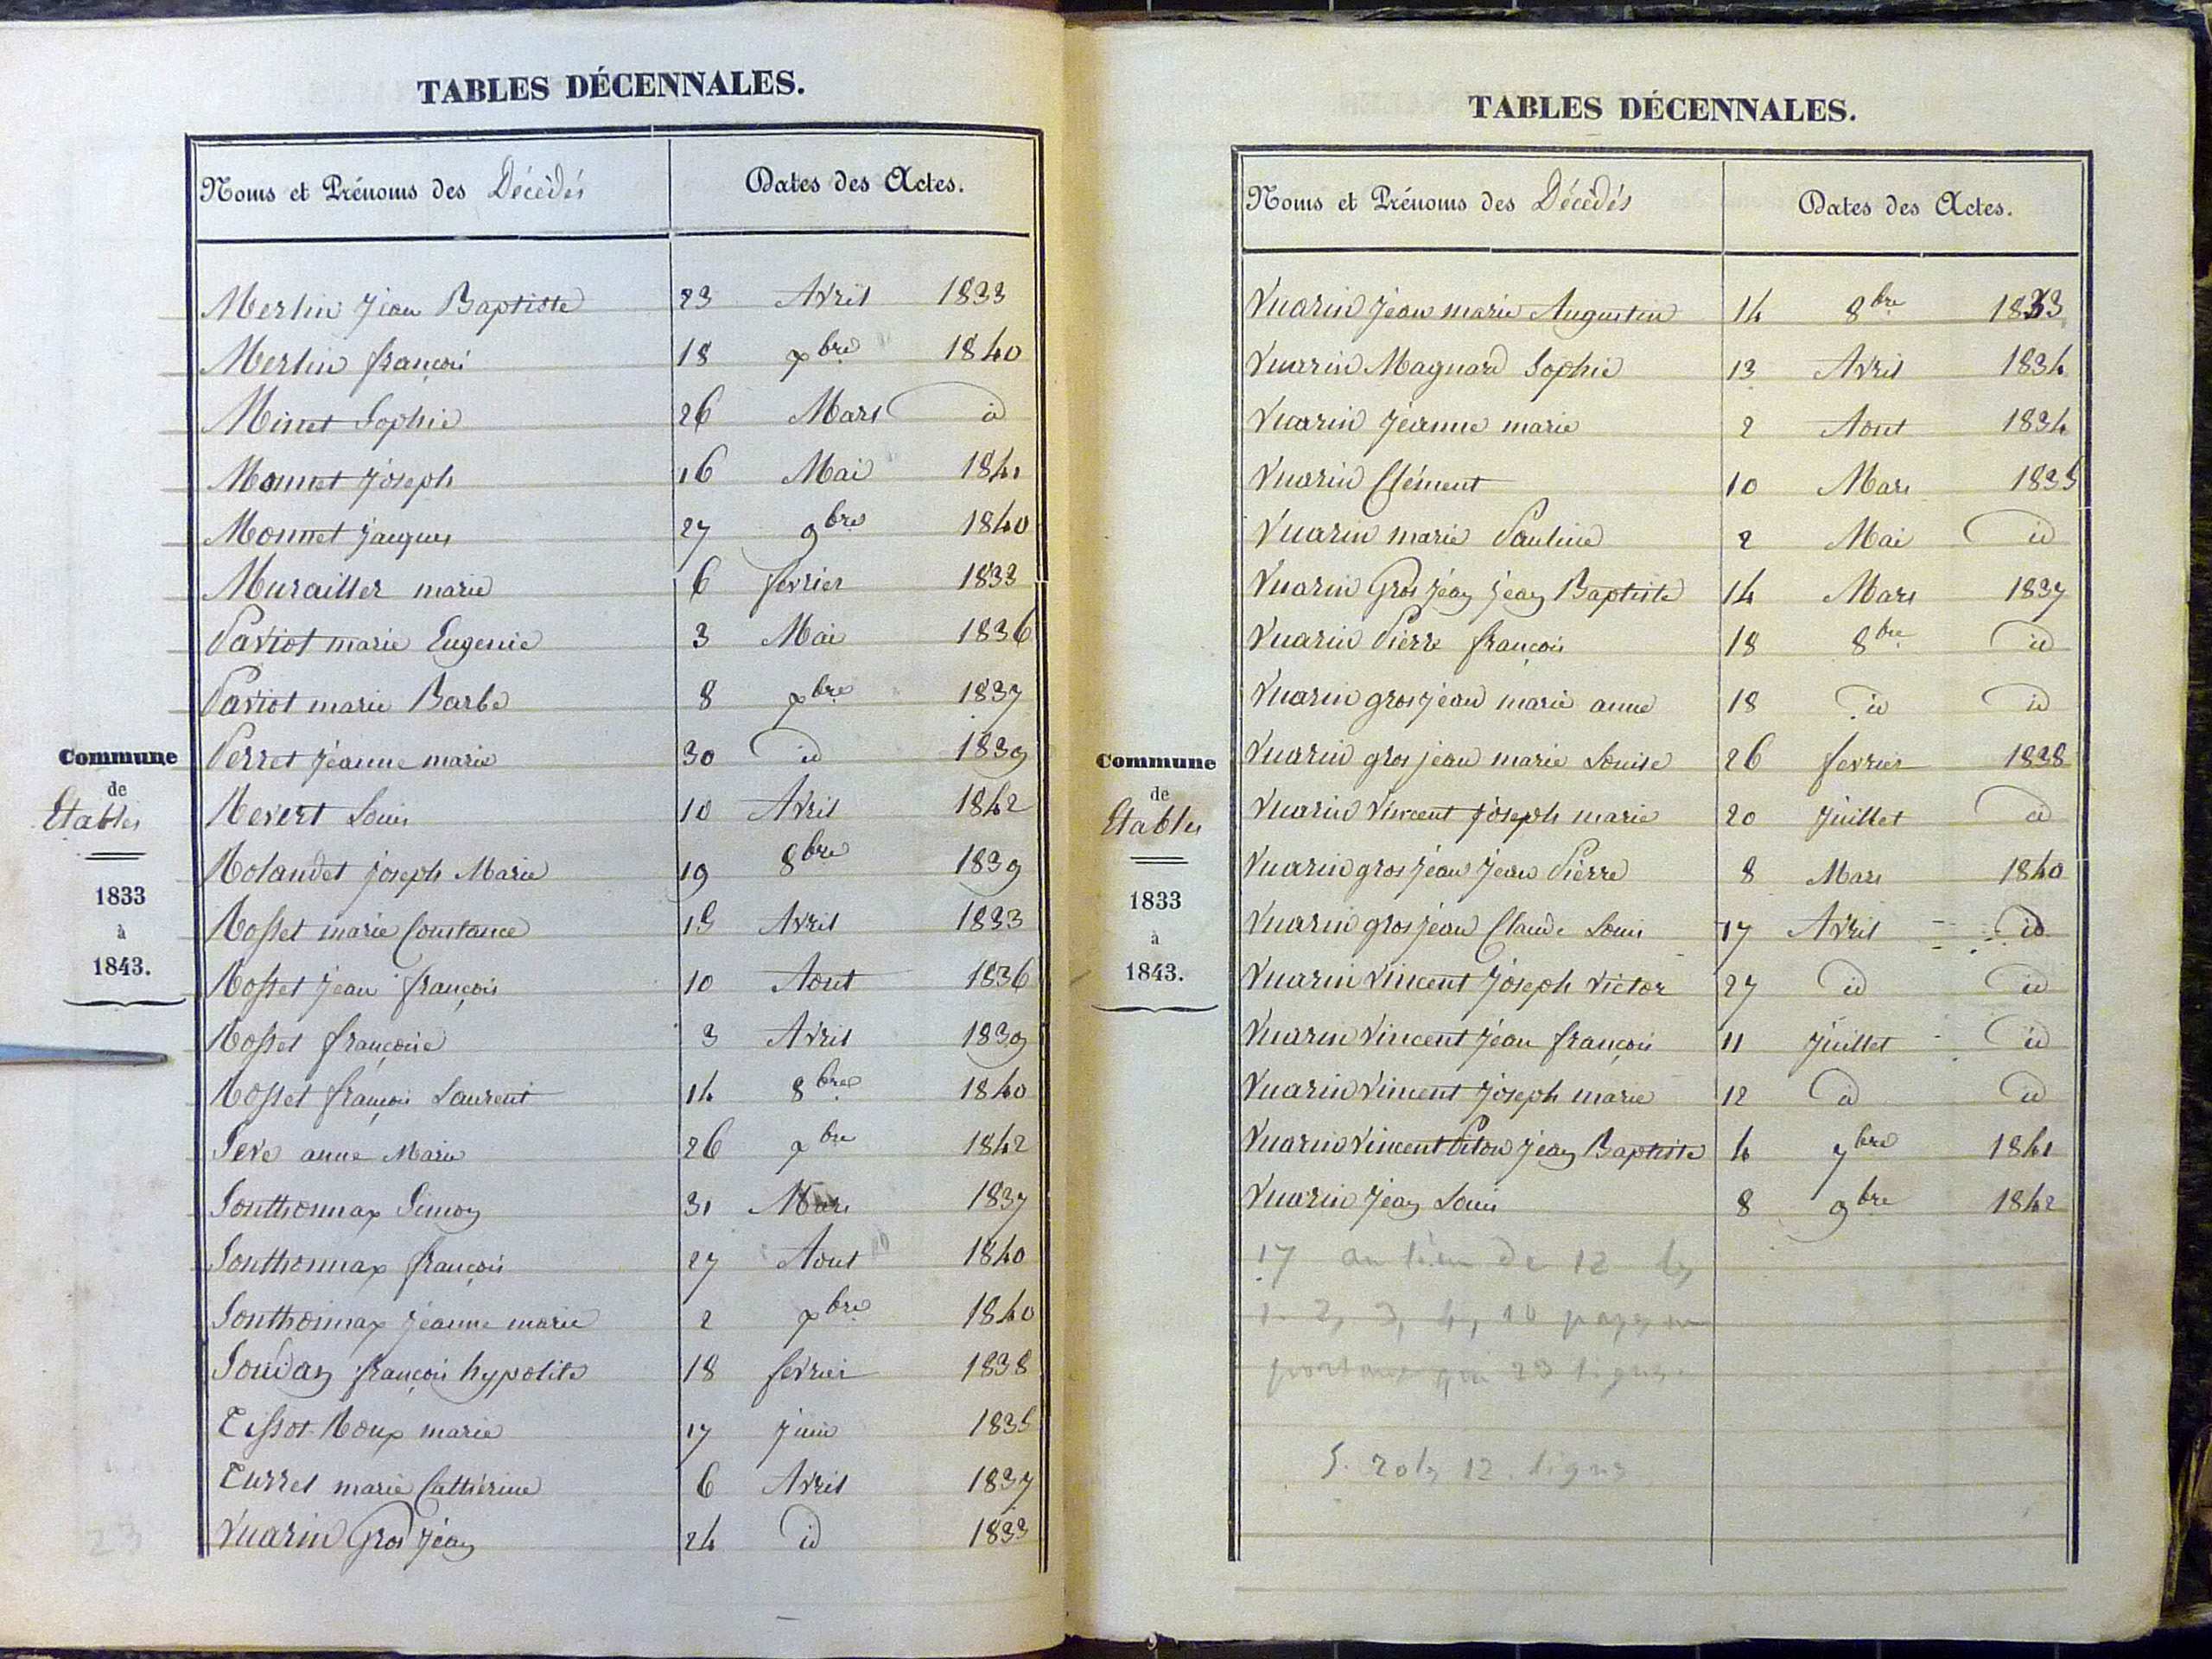 TABLES DÉCENNALES.
Noms et Prénoms des Décédés Dates des Actes.
Merlin Jean Baptiste 23 Avril 1833
Merlin françois 18 xbre 1840
Minet Sophie 26 Mars id
Monnet Joseph 16 Mai 1841
Monnet Jacques 27 9bre 1840
Murailler marie 6 fevrier 1833
Paviot marie Eugenie 3 Mai 1836
Paviot marie Barbe 8 xbre 1837
Perret Jeanne marie 30 id 1839
Revert Louis 10 Avril 1842
Rolandet Joseph Marie 19 8bre 1839
Rosset marie Constance 15 Avril 1833
Rosset Jean françois 10 Aout 1836
Rosset françoise 3 Avril 1839
Rosset françois Laurent 14 8bre 1840
Seve anne Marie 26 xbre 1842
Sonthonnax Simon 31 Mars 1837
Sonthonnax françois 27 Aout 1840
Sonthonnax Jeanne marie 2 xbre 1840
Soudan françois hypolite 18 fevrier 1838
Tissot-Roux marie 17 juin 1835
Turrel marie Catherine 6 Avril 1837
Vuarin Gros Jean 24 id 1833
Commune
de
Etables
1833
à
1843.
23
TABLES DÉCENNALES.
Noms et Prénoms des Décédés Dates des Actes.
Vuarin Jean marie Augustin 14 8bre 1833
Vuarin Magnard Sophie 13 Avril 1834
Vuarin Jeanne marie 2 Aout 1834
Vuarin Clément 10 Mars 1835
Vuarin marie Pauline 2 Mai id
Vuarin Gros Jean Jean Baptiste 14 Mars 1837
Vuarin Pierre françois 18 8bre id
Vuarin grosjean marie anne 18 id id
Vuarin gros jean marie Louise 26 fevrier 1838
Vuarin Vincent Joseph marie 20 Juillet id
Vuarin gros Jean Jean Pierre 8 Mars 1840
Vuarin gros jean Claude Louis 17 Avril id
Vuarin Vincent Joseph Victor 27 id id
Vuarin Vincent Jean françois 11 Juillet id
Vuarin Vincent Joseph marie 12 id id
Vuarin Vincent Piton Jean Baptiste 4 7bre 1841
Vuarin Jean Louis 8 9bre 1842
17 au lieu de 12 les
1. 2, 3, 4, 10 pages
23 lignes
5. rols 12. lignes
Commune
de
Etables
1833
à
1843.